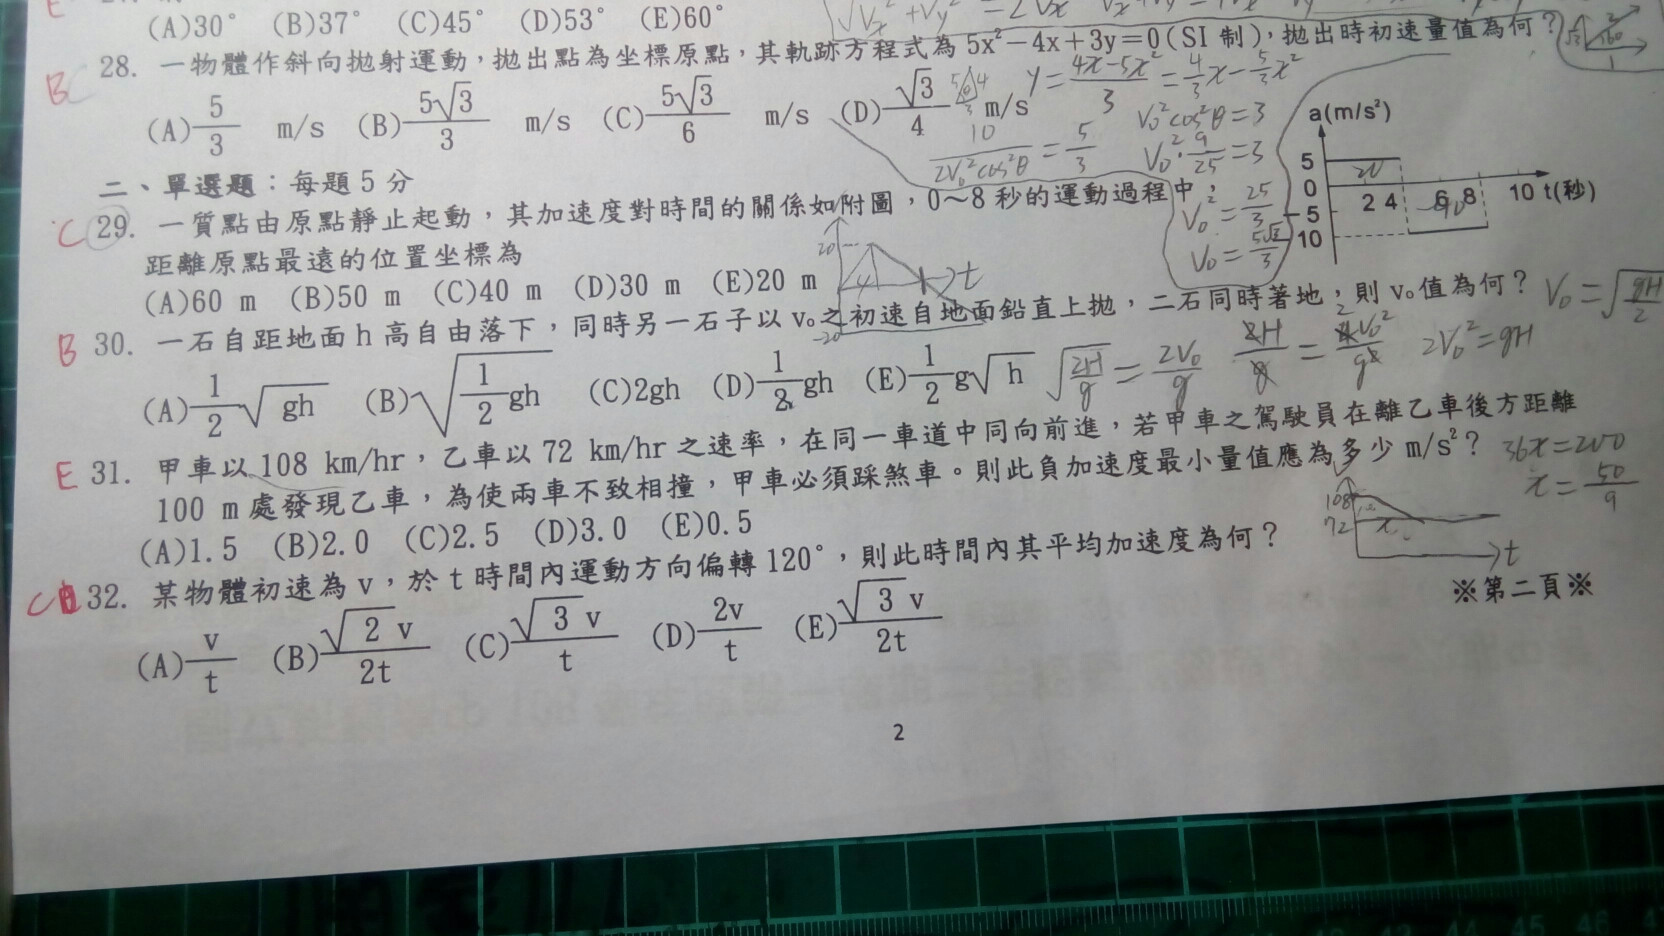 (A)30° (B)37° (C)45° (D)53° (E)60°
BC 28. 一物體作斜向拋射運動，拋出點為坐標原點，其軌跡方程式為 5x²－4x＋3y＝0（SI 制），拋出時初速量值為何？
(A) 5/3 m/s (B) 5√3/3 m/s (C) 5√3/6 m/s (D) √3/4 m/s
y = (4x-5x²)/3 = 4/3 x - 5/3 x²
10/(2V₀²cos²θ) = 5/3
V₀²cos²θ = 3
V₀²·9/25 = 3
V₀² = 25/3
V₀ = 5√3/3
二、單選題：每題 5 分
C 29. 一質點由原點靜止起動，其加速度對時間的關係如附圖，0～8 秒的運動過程中，
距離原點最遠的位置坐標為
(A)60 m (B)50 m (C)40 m (D)30 m (E)20 m
a(m/s²)
5
0
-5
-10
2 4 6 8 10 t(秒)
20
20
4
t
-20
B 30. 一石自距地面 h 高自由落下，同時另一石子以 v₀之初速自地面鉛直上拋，二石同時著地，則 v₀值為何？
(A) 1/2 √gh (B) √(1/2 gh) (C)2gh (D) 1/2 gh (E) 1/2 g√h
√(2H/g) = 2V₀/g
2H/g = 4V₀²/g²
2V₀² = gH
V₀ = √(gH/2)
E 31. 甲車以 108 km/hr，乙車以 72 km/hr 之速率，在同一車道中同向前進，若甲車之駕駛員在離乙車後方距離
100 m 處發現乙車，為使兩車不致相撞，甲車必須踩煞車。則此負加速度最小量值應為多少 m/s²？
(A)1.5 (B)2.0 (C)2.5 (D)3.0 (E)0.5
36x = 200
x = 50/9
108
72
x
t
C 32. 某物體初速為 v，於 t 時間內運動方向偏轉 120°，則此時間內其平均加速度為何？
(A) v/t (B) √2 v/2t (C) √3 v/t (D) 2v/t (E) √3 v/2t
※第二頁※
2